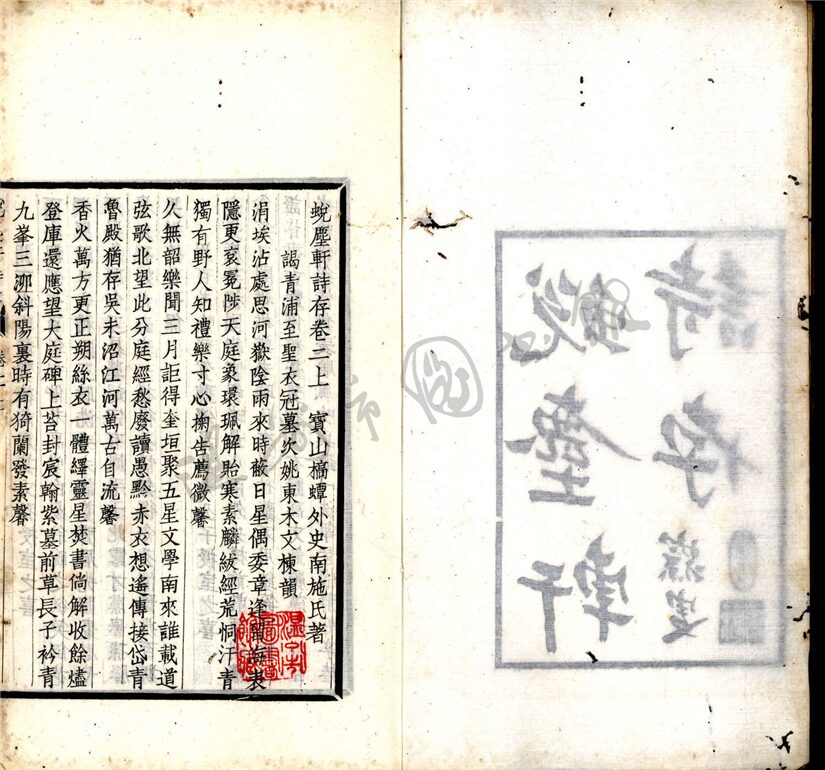 蛻塵軒
詩存
蛻塵軒詩存卷二上 寶山檮蟫外史南施氏著
謁青浦至聖衣冠墓次姚東木文棟韻
涓埃沾處思河嶽陰雨來時蔽日星偶委章逢留海表
隱更衮冕陟天庭象環珮解胎寒素麟紱經荒恫汗青
獨有野人知禮樂寸心掬告薦微馨
久無韶樂聞三月詎得奎垣聚五星文學南來誰載道
弦歌北望此分庭經愁廢讀愚黔赤衣想遙傳接岱青
魯殿猶存吳未沼江河萬古自流馨
香火萬方更正朔絲衣一體繹靈星焚書倘解收餘燼
登庫還應望大庭碑上苔封宸翰紫墓前草長子衿青
九峯三泖斜陽裏時有猗蘭發素馨